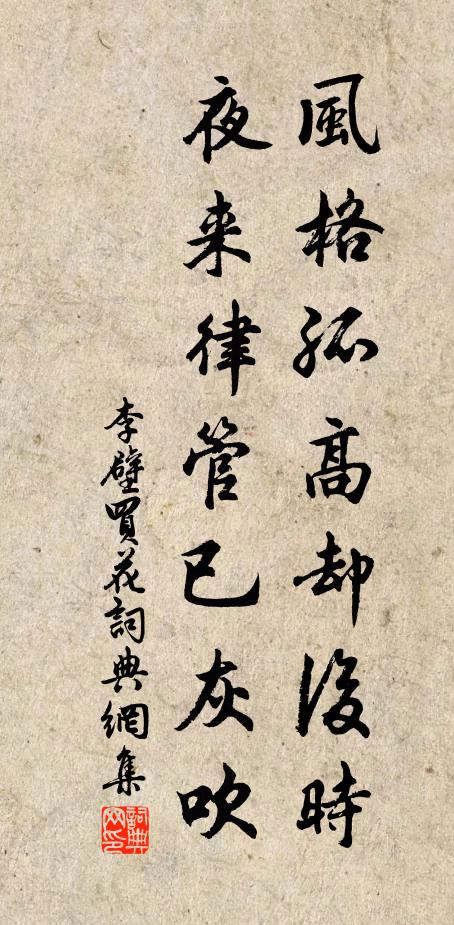 風格孤高却後時
夜来律管已灰吹
李壁買花詞典網集
詞典網印